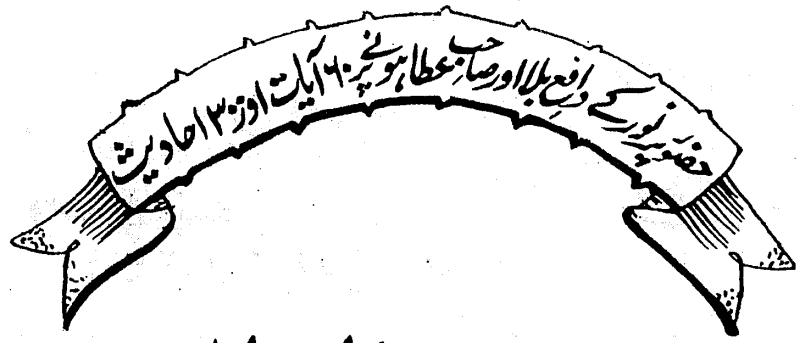 حضور پر نور کے دافعِ بلا اور صاحبِ عطا ہونے پر ۶۰ آیات اور ۳۰۰ احادیث